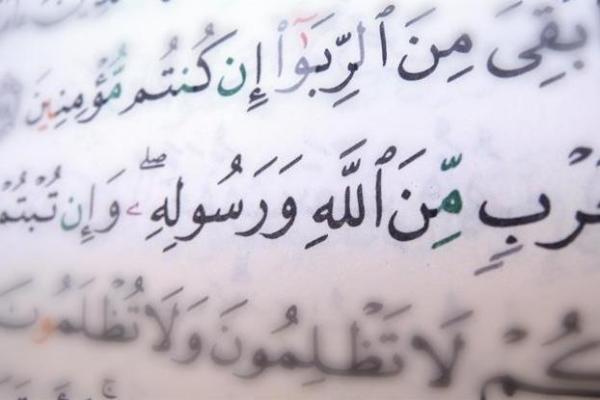 بَقِىَ مِنَ ٱلرِّبَوٰٓا۟ إِن كُنتُم مُّؤْمِنِينَ
مِّنَ ٱللَّهِ وَرَسُولِهِۦ ۖ وَإِن تُبْتُمْ
لَا تَظْلِمُونَ وَلَا تُظْلَمُونَ